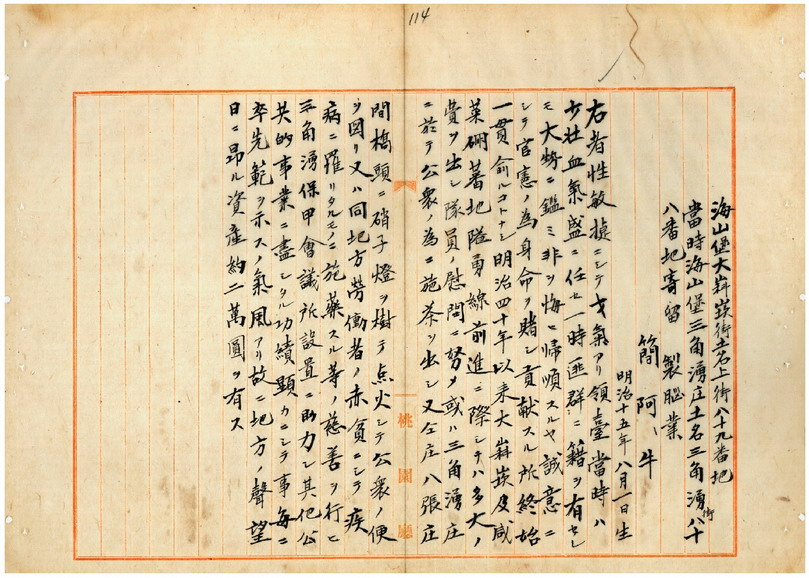 114
海山堡大嵙崁街土名上街八十九番地
當時海山堡三角湧庄土名三角湧街八十
八番地寄留 製脳業
簡阿牛
明治十五年八月一日生
右者性敏捷ニシテ才氣アリ領臺當時ハ
少壮血氣盛ニ任セ一時匪群ニ籍ヲ有セシ
モ大勢ニ鑑ミ非ヲ悔ヒ帰順スルヤ誠意ニ
シテ官憲ノ為身命ヲ賭シ貢献スル所終始
一貫渝ルコトナシ明治四十年以来大嵙崁及咸
菜硼蕃地隘勇線前進ニ際シテハ多大ノ
費ヲ出シ隊員ノ慰問ニ努メ或ハ三角湧庄
ニ於テ公衆ノ為ニ施茶ヲ出シ又仝庄八張庄
間橋頭ニ硝子燈ヲ樹テ点火シテ公衆ノ便
ヲ図リ又ハ同地方労働者ノ赤貧ニシテ疾
病ニ罹リタルモノニ施薬スル等ノ慈善ヲ行ヒ
三角湧保甲會議所設置ニ助力シ其他公
共的事業ニ盡シタル功績顕カニシテ事毎ニ
卒先範ヲ示スノ氣風アリ故ニ地方ノ聲望
日ニ昂ル資産約二萬圓ヲ有ス
桃園廳